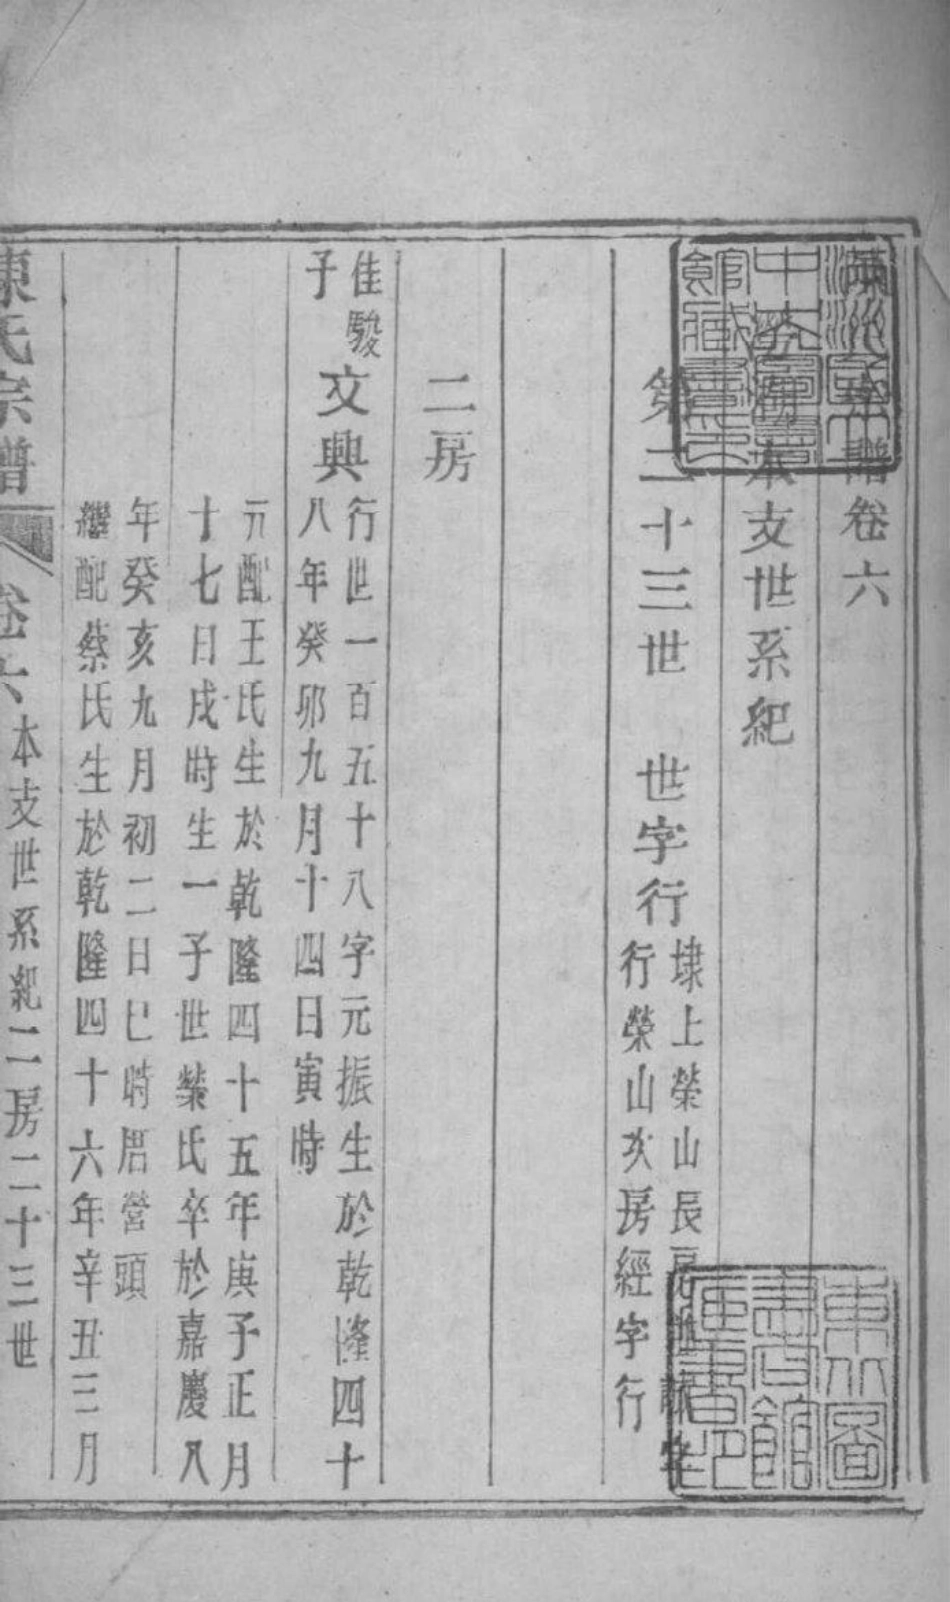 宗譜卷六
本支世系紀
第二十三世　世字行
埭上榮山長房世詠字
行榮山次房經字行
二房
佳駿
子
文興
行世一百五十八字元振生於乾隆四十
八年癸卯九月十四日寅時
元配王氏生於乾隆四十五年庚子正月
十七日戌時生一子世榮氏卒於嘉慶八
年癸亥九月初二日巳時厝營頭
繼配蔡氏生於乾隆四十六年辛丑三月
陳氏宗譜
卷六
本支世系紀二房二十三世